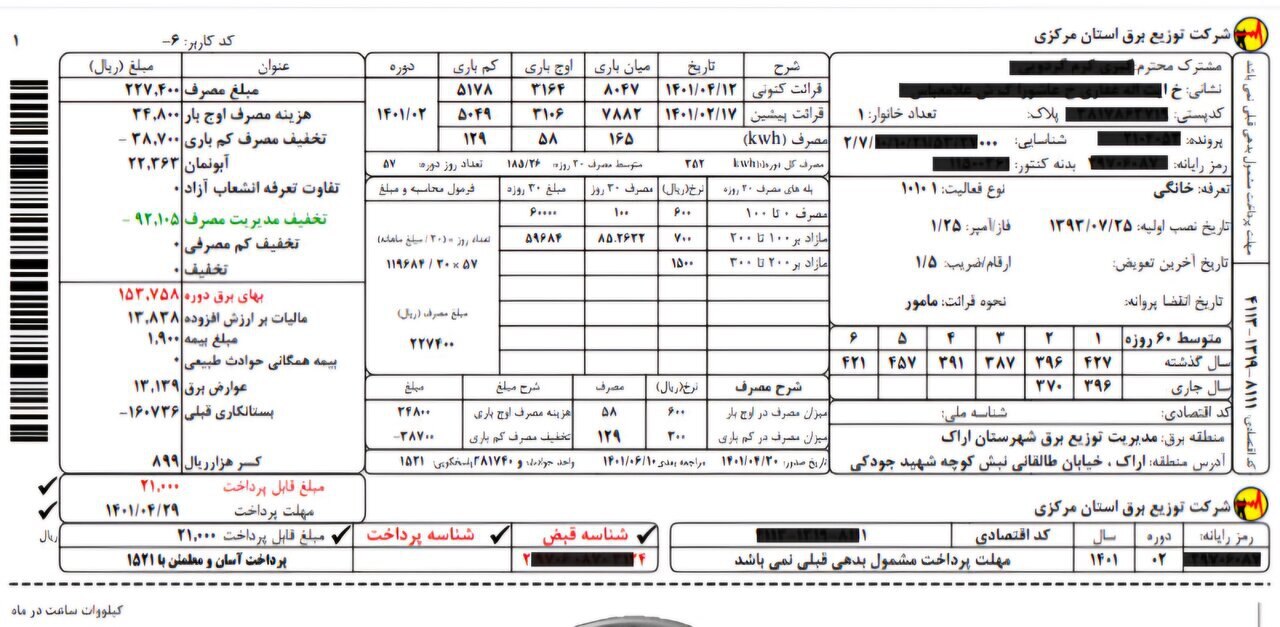 شرکت توزیع برق استان مرکزی
کد کاربر: ۶-
۱
مشترک محترم:
نشانی: خ
کدپستی: پلاک: تعداد خانوار: ۱
پرونده: شناسایی: ۲/۷/ ۰۰۰
رمز رایانه: بدنه کنتور:
تعرفه: خانگی نوع فعالیت: ۱۰۱۰۱
تاریخ نصب اولیه: ۱۳۹۳/۰۷/۲۵ فاز/آمپر: ۱/۲۵
تاریخ آخرین تعویض: ارقام/ضریب: ۱/۵
تاریخ انقضا پروانه: نحوه قرائت: مامور
متوسط ۶۰ روزه ۱ ۲ ۳ ۴ ۵ ۶
سال گذشته ۴۲۷ ۳۹۶ ۳۸۷ ۳۹۱ ۴۵۷ ۴۲۱
سال جاری ۳۹۶ ۳۷۰
کد اقتصادی: شناسه ملی:
منطقه برق: مدیریت توزیع برق شهرستان اراک
آدرس منطقه: اراک ، خیابان طالقانی نبش کوچه شهید جودکی
مهلت پرداخت مشمول بدهی قبلی نمی باشد
کد اقتصادی: ۴۱۱۳-۱۳۱۹-۸۱۱۱
شرح تاریخ میان باری اوج باری کم باری دوره
قرائت کنونی ۱۴۰۱/۰۴/۱۲ ۸۰۴۷ ۳۱۶۴ ۵۱۷۸
قرائت پیشین ۱۴۰۱/۰۲/۱۷ ۷۸۸۲ ۳۱۰۶ ۵۰۴۹ ۱۴۰۱/۰۲
مصرف (kwh) ۱۶۵ ۵۸ ۱۲۹
مصرف کل دوره kwh: ۳۵۲ متوسط مصرف ۳۰ روزه: ۱۸۵/۲۶ تعداد روز دوره: ۵۷
پله های مصرف ۳۰ روزه نرخ(ریال) مصرف ۳۰ روز مبلغ ۳۰ روزه فرمول محاسبه و مبلغ
مصرف ۰ تا ۱۰۰ ۶۰۰ ۱۰۰ ۶۰۰۰۰
مازاد بر ۱۰۰ تا ۲۰۰ ۷۰۰ ۸۵.۲۶۳۲ ۵۹۶۸۴ تعداد روز × (۳۰ / مبلغ ماهانه)
مازاد بر ۲۰۰ تا ۳۰۰ ۱۵۰۰ ۱۱۹۶۸۴ / ۳۰ × ۵۷
مبلغ مصرف (ریال)
۲۲۷۴۰۰
شرح مصرف نرخ(ریال) مصرف شرح مبلغ مبلغ
میزان مصرف در اوج بار ۶۰۰ ۵۸ هزینه مصرف اوج باری ۳۴۸۰۰
میزان مصرف در کم باری ۳۰۰ ۱۲۹ تخفیف مصرف کم باری ۳۸۷۰۰-
تاریخ صدور: ۱۴۰۱/۰۴/۲۰ مراجعه بعدی: ۱۴۰۱/۰۶/۱۰ واحد حوادث: ۳۸۱۷۴۰ پاسخگویی: ۱۵۲۱
عنوان مبلغ (ریال)
مبلغ مصرف ۲۲۷,۴۰۰
هزینه مصرف اوج بار ۳۴,۸۰۰
تخفیف مصرف کم باری ۳۸,۷۰۰ -
آبونمان ۲۲,۳۶۳
تفاوت تعرفه انشعاب آزاد ۰
تخفیف مدیریت مصرف ۹۲,۱۰۵ -
تخفیف کم مصرفی ۰
تخفیف ۰
بهای برق دوره ۱۵۳,۷۵۸
مالیات بر ارزش افزوده ۱۳,۸۳۸
مبلغ بیمه ۱,۹۰۰
بیمه همگانی حوادث طبیعی ۰
عوارض برق ۱۳,۱۳۹
بستانکاری قبلی ۱۶۰۷۳۶-
کسر هزار ریال ۸۹۹
مبلغ قابل پرداخت ۲۱,۰۰۰
مهلت پرداخت ۱۴۰۱/۰۴/۲۹
شرکت توزیع برق استان مرکزی
رمز رایانه: دوره سال کد اقتصادی
۰۲ ۱۴۰۱ مهلت پرداخت مشمول بدهی قبلی نمی باشد
شناسه قبض شناسه پرداخت مبلغ قابل پرداخت ۲۱,۰۰۰ ریال
پرداخت آسان و مطمئن با ۱۵۲۱
کیلووات ساعت در ماه